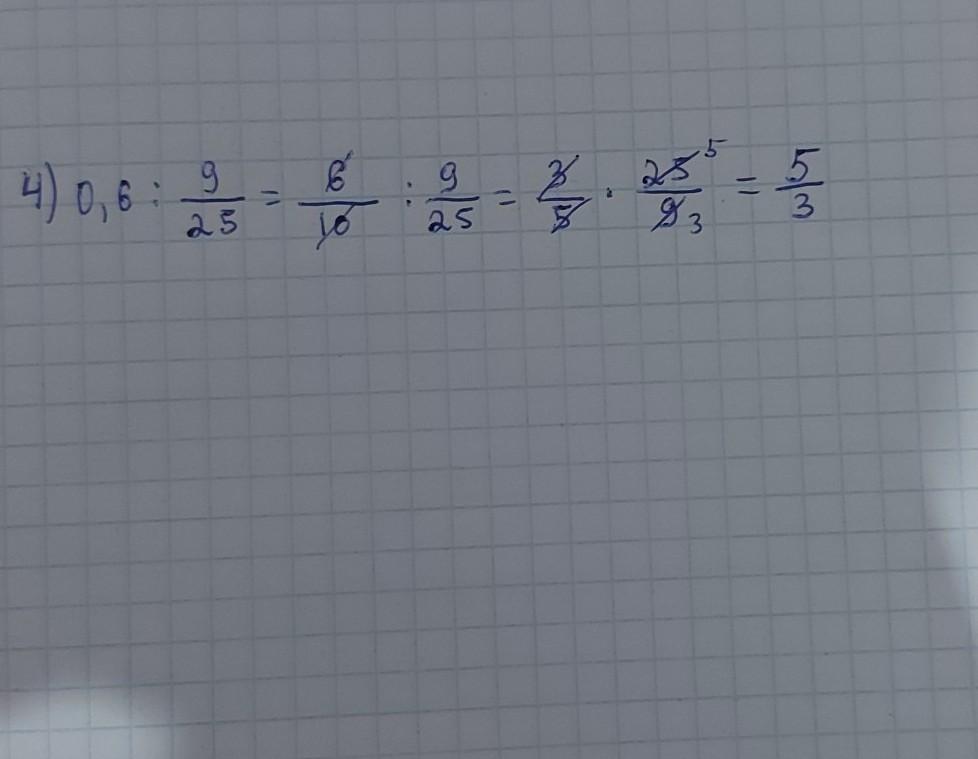 4) 0,6 : 9/25 = 6/10 : 9/25 = 3/5 · 25 5/9 3 = 5/3